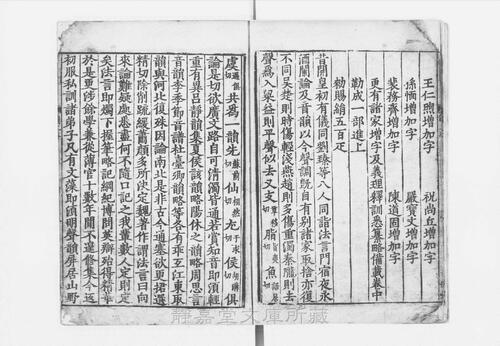 王仁煦增加字　祝尚丘增加字
孫愐增加字　嚴寶文增加字
裴務齊增加字　陳道固增加字
更有諸家增字及義理釋訓悉纂略備載卷中
勒成一部進上
勑賜絹五百疋
昔開皇初有儀同劉臻等八人同詣法言門宿夜永
酒闌論及音韻以今聲調既自有別諸家取捨亦復
不同吳楚則時傷輕淺燕趙則多傷重濁秦隴則去
聲爲入梁益則平聲似去又支章移切脂旨夷切魚語居切
虞遇俱切共爲一韻先蘇前切仙相然切尤于求切侯胡溝切俱
論是切欲廣文路自可清濁皆通若賞知音即須輕
重有異呂靜韻集夏侯該韻略陽休之韻略周思言
音韻李季節音譜杜臺卿韻略等各有乖互江東取
韻與河北復殊因論南北是非古今通塞欲更捃選
精切除削疏緩蕭顏多所決定魏著作謂法言曰向
來論難疑處悉盡何不隨口記之我輩數人定則定
矣法言即燭下握筆略記綱紀博問英辯殆得精華
於是更涉餘學兼從薄宦十數年間不遑修集今返
初服私訓諸弟子凡有文藻即須明聲韻屏居山野
靜嘉堂文庫所藏